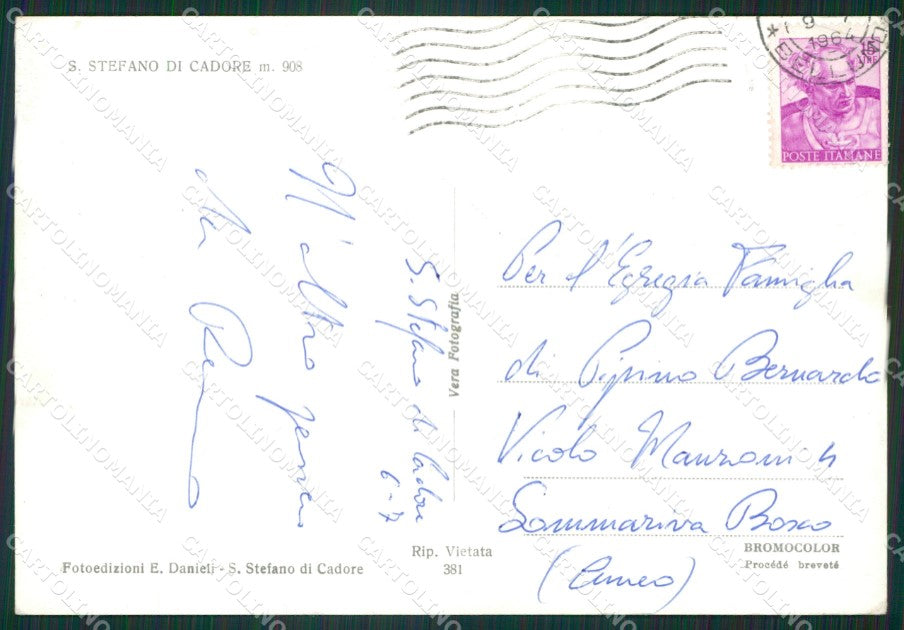 S. STEFANO DI CADORE m. 908
1964
POSTE ITALIANE
S. Stefano di Cadore
6-7
Vera Fotografia
Per l'Egregia Famiglia
di Pipino Bernardo
Vicolo Manzoni 4
Sommariva Bosco
(Cuneo)
BROMOCOLOR
Procédé breveté
Rip. Vietata
381
Fotoedizioni E. Danieli - S. Stefano di Cadore
CARTOLINOMANIA